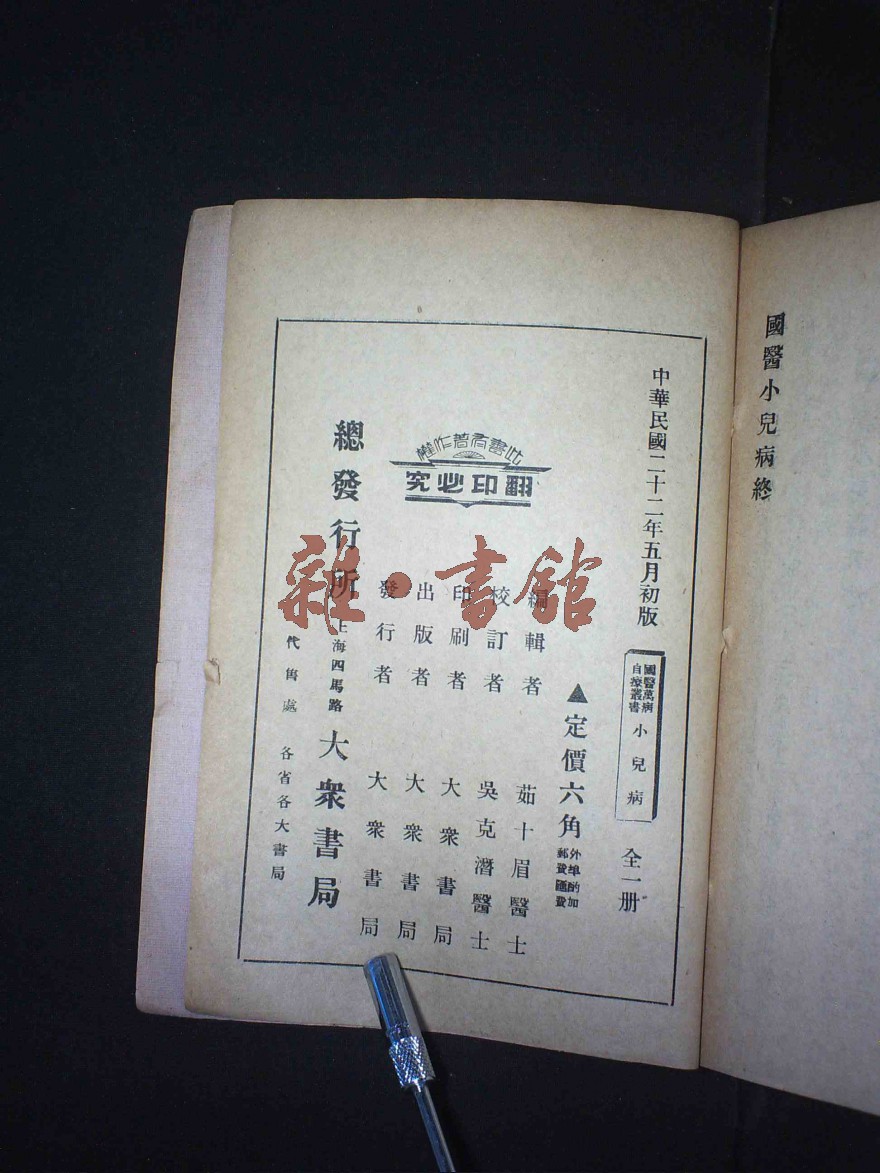 國醫小兒病終
中華民國二十二年五月初版
國醫萬病
自療叢書
小兒病
全一册
▲定價六角
外埠酌加
郵費匯費
編輯者 茹十眉醫士
校訂者 吳克潛醫士
印刷者 大衆書局
出版者 大衆書局
發行者 大衆書局
此書有著作權
翻印必究
總發行所 上海四馬路 大衆書局
代售處 各省各大書局
雜·書館